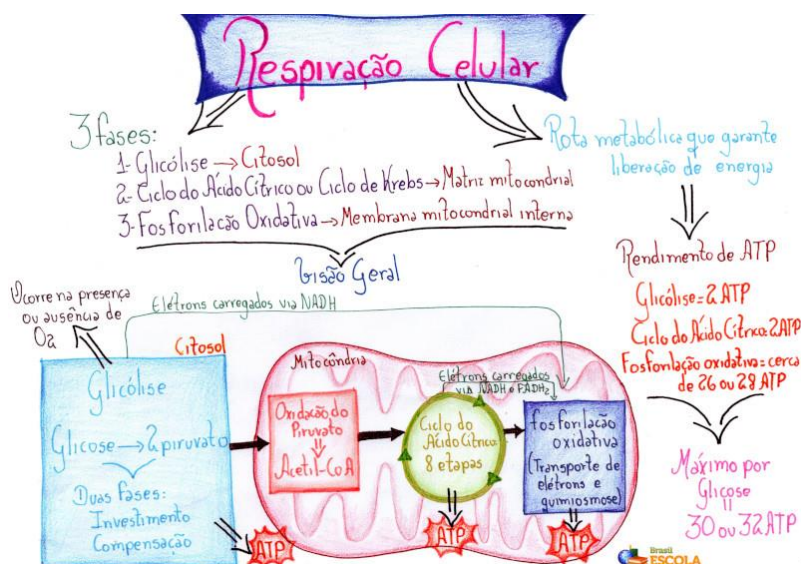 Respiração Celular
3 fases:
1- Glicólise → Citosol
2- Ciclo do Ácido Cítrico ou Ciclo de Krebs → Matriz mitocondrial
3- Fosforilação Oxidativa → Membrana mitocondrial interna
Visão Geral
Rota metabólica que garante
liberação de energia
Rendimento de ATP
Glicólise = 2 ATP
Ciclo do Ácido Cítrico = 2 ATP
Fosforilação oxidativa = cerca
de 26 ou 28 ATP
Máximo por
Glicose
=
30 ou 32 ATP
Ocorre na presença
ou ausência de
O2
Elétrons carregados via NADH
Citosol
Glicólise
Glicose → 2 piruvato
Duas fases:
Investimento
Compensação
ATP
Mitocôndria
Oxidação do
Piruvato
Acetil-CoA
Elétrons carregados
via NADH e FADH2
Ciclo do
Ácido Cítrico:
8 etapas
ATP
Fosforilação
oxidativa
(Transporte de
elétrons e
quimiosmose)
ATP
Brasil
ESCOLA